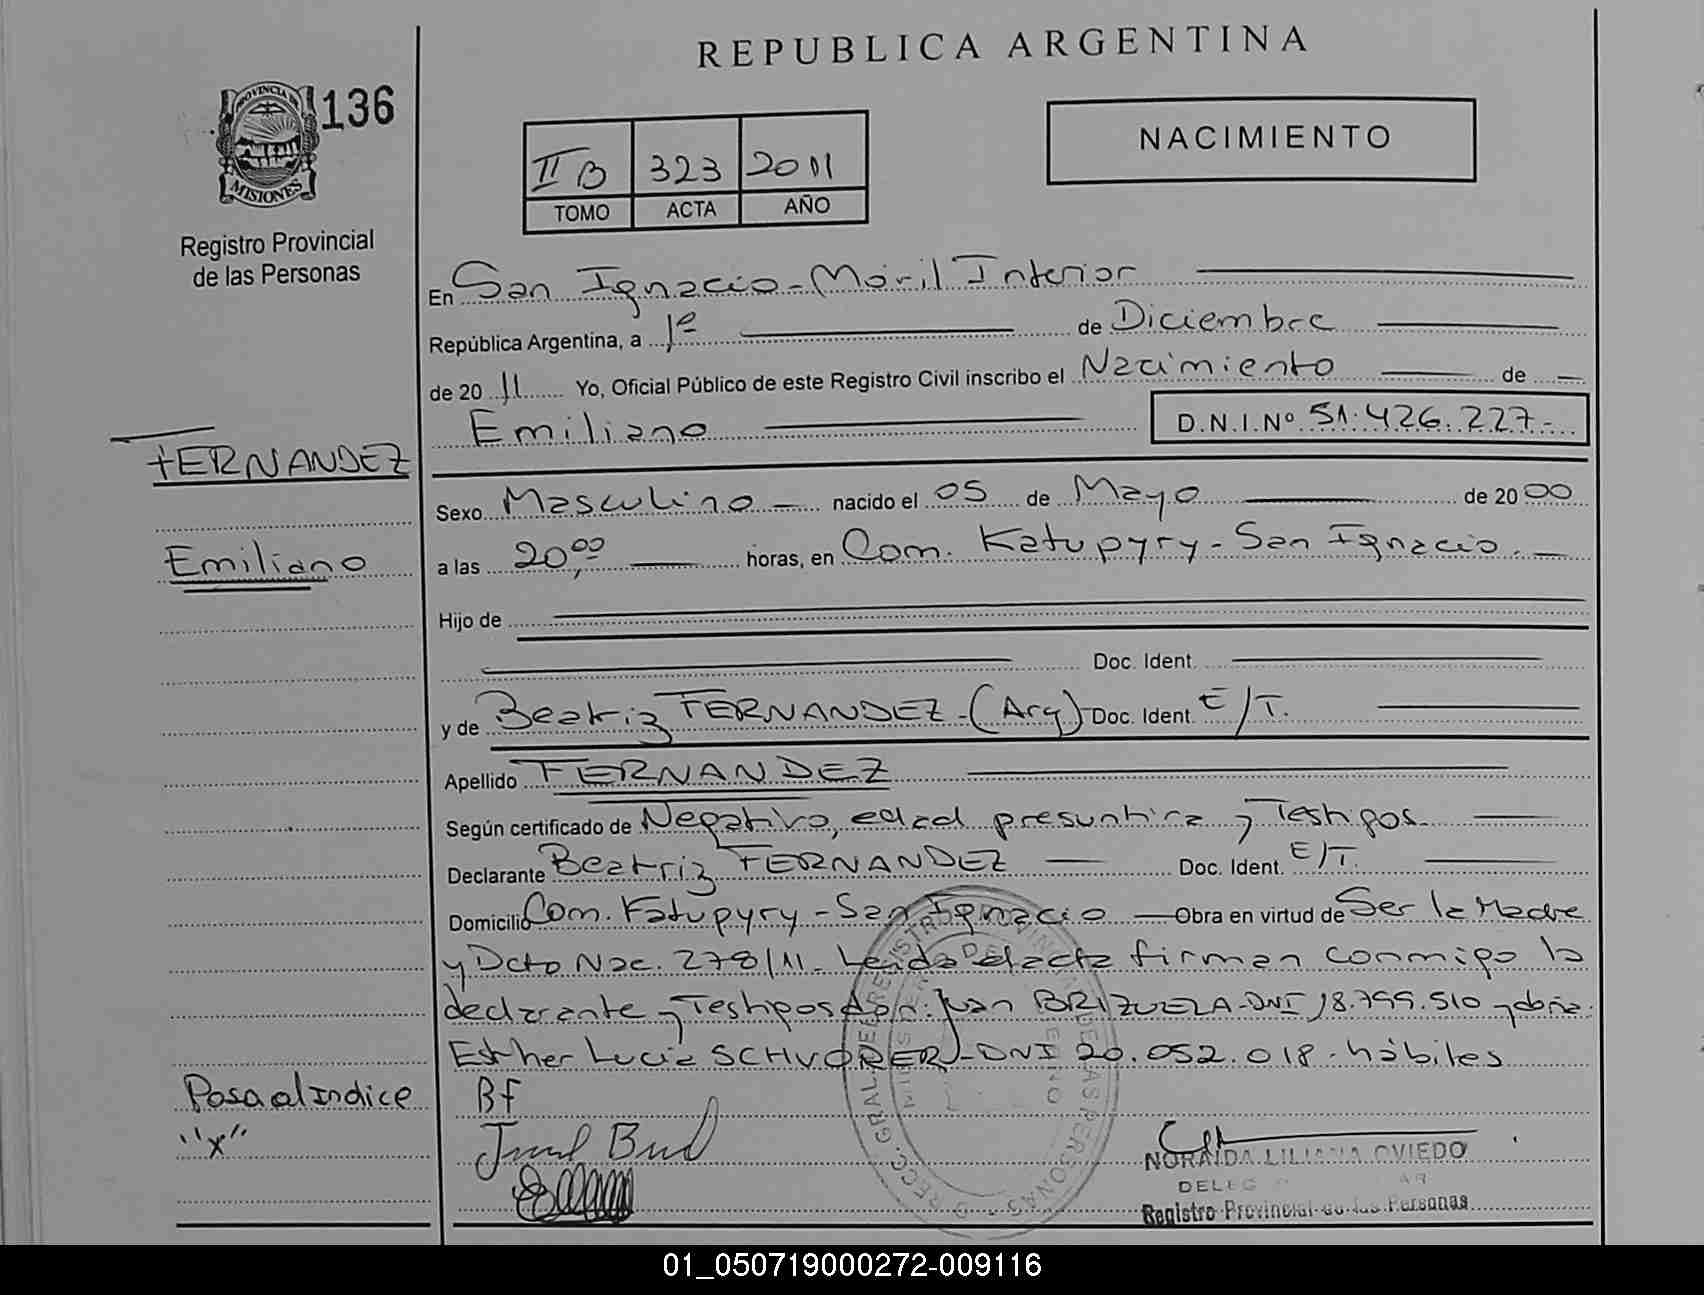 REPUBLICA ARGENTINA
PROVINCIA DE
MISIONES
136
Registro Provincial
de las Personas
II B 323 2011
TOMO ACTA AÑO
NACIMIENTO
En San Ignacio - Móvil Interior
República Argentina, a 1º de Diciembre
de 20 11 Yo, Oficial Público de este Registro Civil inscribo el Nacimiento de
Emiliano D.N.I. Nº 51.426.227.-
FERNANDEZ
Emiliano
Sexo Masculino nacido el 05 de Mayo de 20 00
a las 20,00 horas, en Com. Katupyry - San Ignacio.
Hijo de
Doc. Ident.
y de Beatriz FERNANDEZ - (Arg) Doc. Ident. E/T.
Apellido FERNANDEZ
Según certificado de Negativo, edad presuntiva y Testigos.
Declarante Beatriz FERNANDEZ Doc. Ident. E/T.
Domicilio Com. Katupyry - San Ignacio Obra en virtud de Ser la Madre
y Dcto Nac. 278/11. Leída el acta firman conmigo la
declarante y Testigos Don: Juan BRIZUELA - DNI 18.799.510 y doña
Esther Lucia SCHVORER - DNI 20.052.018 - hábiles
Pasa al Indice
"x"
BF
NORAIDA LILIANA OVIEDO
Registro Provincial de las Personas
01_050719000272-009116